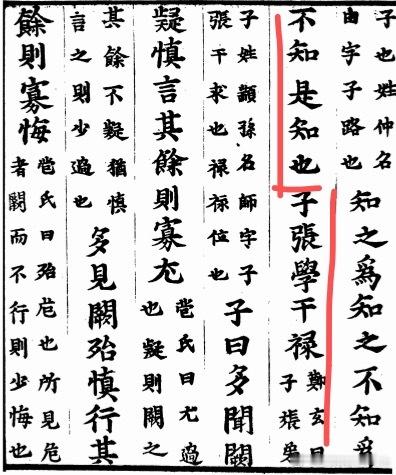 子也姓仲名
由字子路也
知之爲知之不知爲
不知是知也子張學干禄
鄭玄曰
子張
子姓顓孫名師字子
張干求也禄禄位也
子曰多聞闕
疑慎言其餘則寡尤
苞氏曰尤過
也疑則闕之
其餘不疑猶慎
言之則少過也
多見闕殆慎行其
餘則寡悔
苞氏曰殆危也所見危
者闕而不行則少悔也